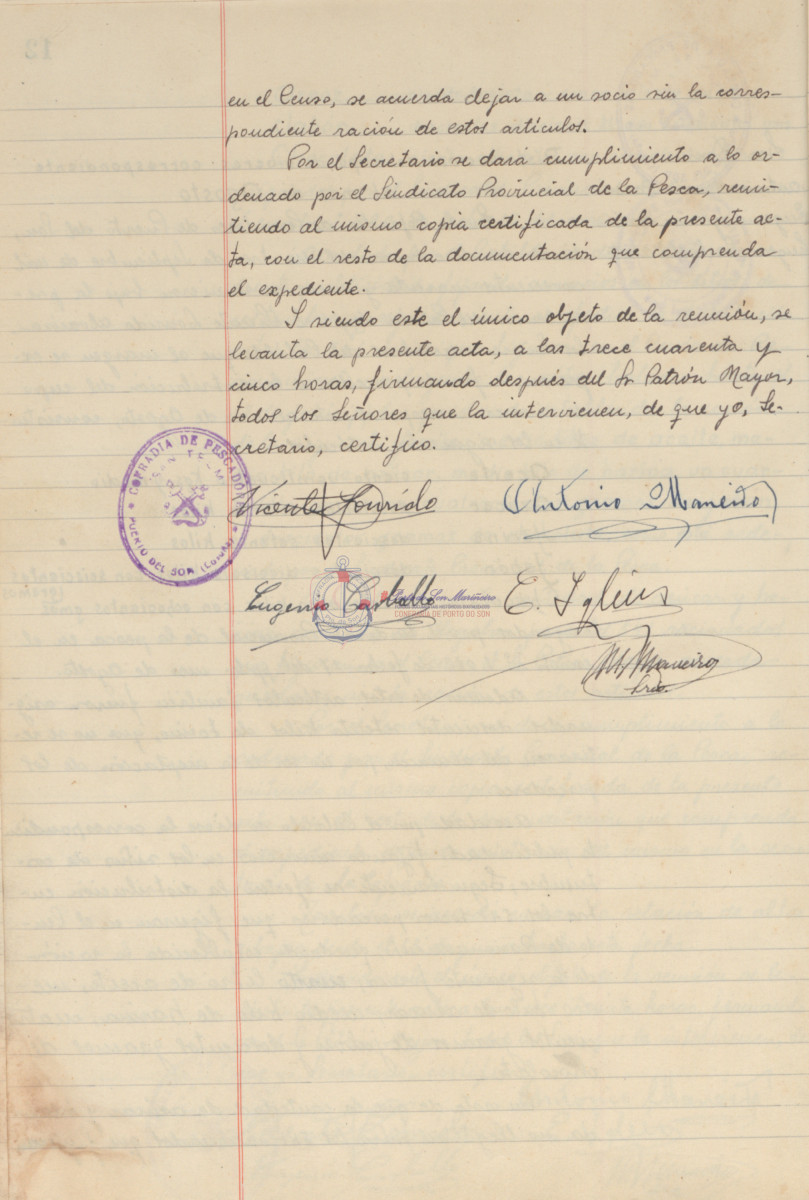 en el Censo, se acuerda dejar a un socio sin la corres-
pondiente ración de estos artículos.
Por el Secretario se dará cumplimiento a lo or-
denado por el Sindicato Provincial de la Pesca, remi-
tiendo al mismo copia certificada de la presente ac-
ta, con el resto de la documentación que comprenda
el expediente.
Y siendo este el único objeto de la reunión, se
levanta la presente acta, a las trece cuarenta y
cinco horas, firmando después del Sr Patrón Mayor,
todos los Señores que la intervienen, de que yo, Se-
cretario, certifico.
COFRADIA DE PESCADORES
SAN TELMO
PUERTO DEL SON (CORUÑA)
Vicente Lourido
Antonio Maneiro
Eugenio Carballo
E. Iglesias
Son Mariñeiro
CONFRARÍA DE PORTO DO SON
Maneiro
Srio.